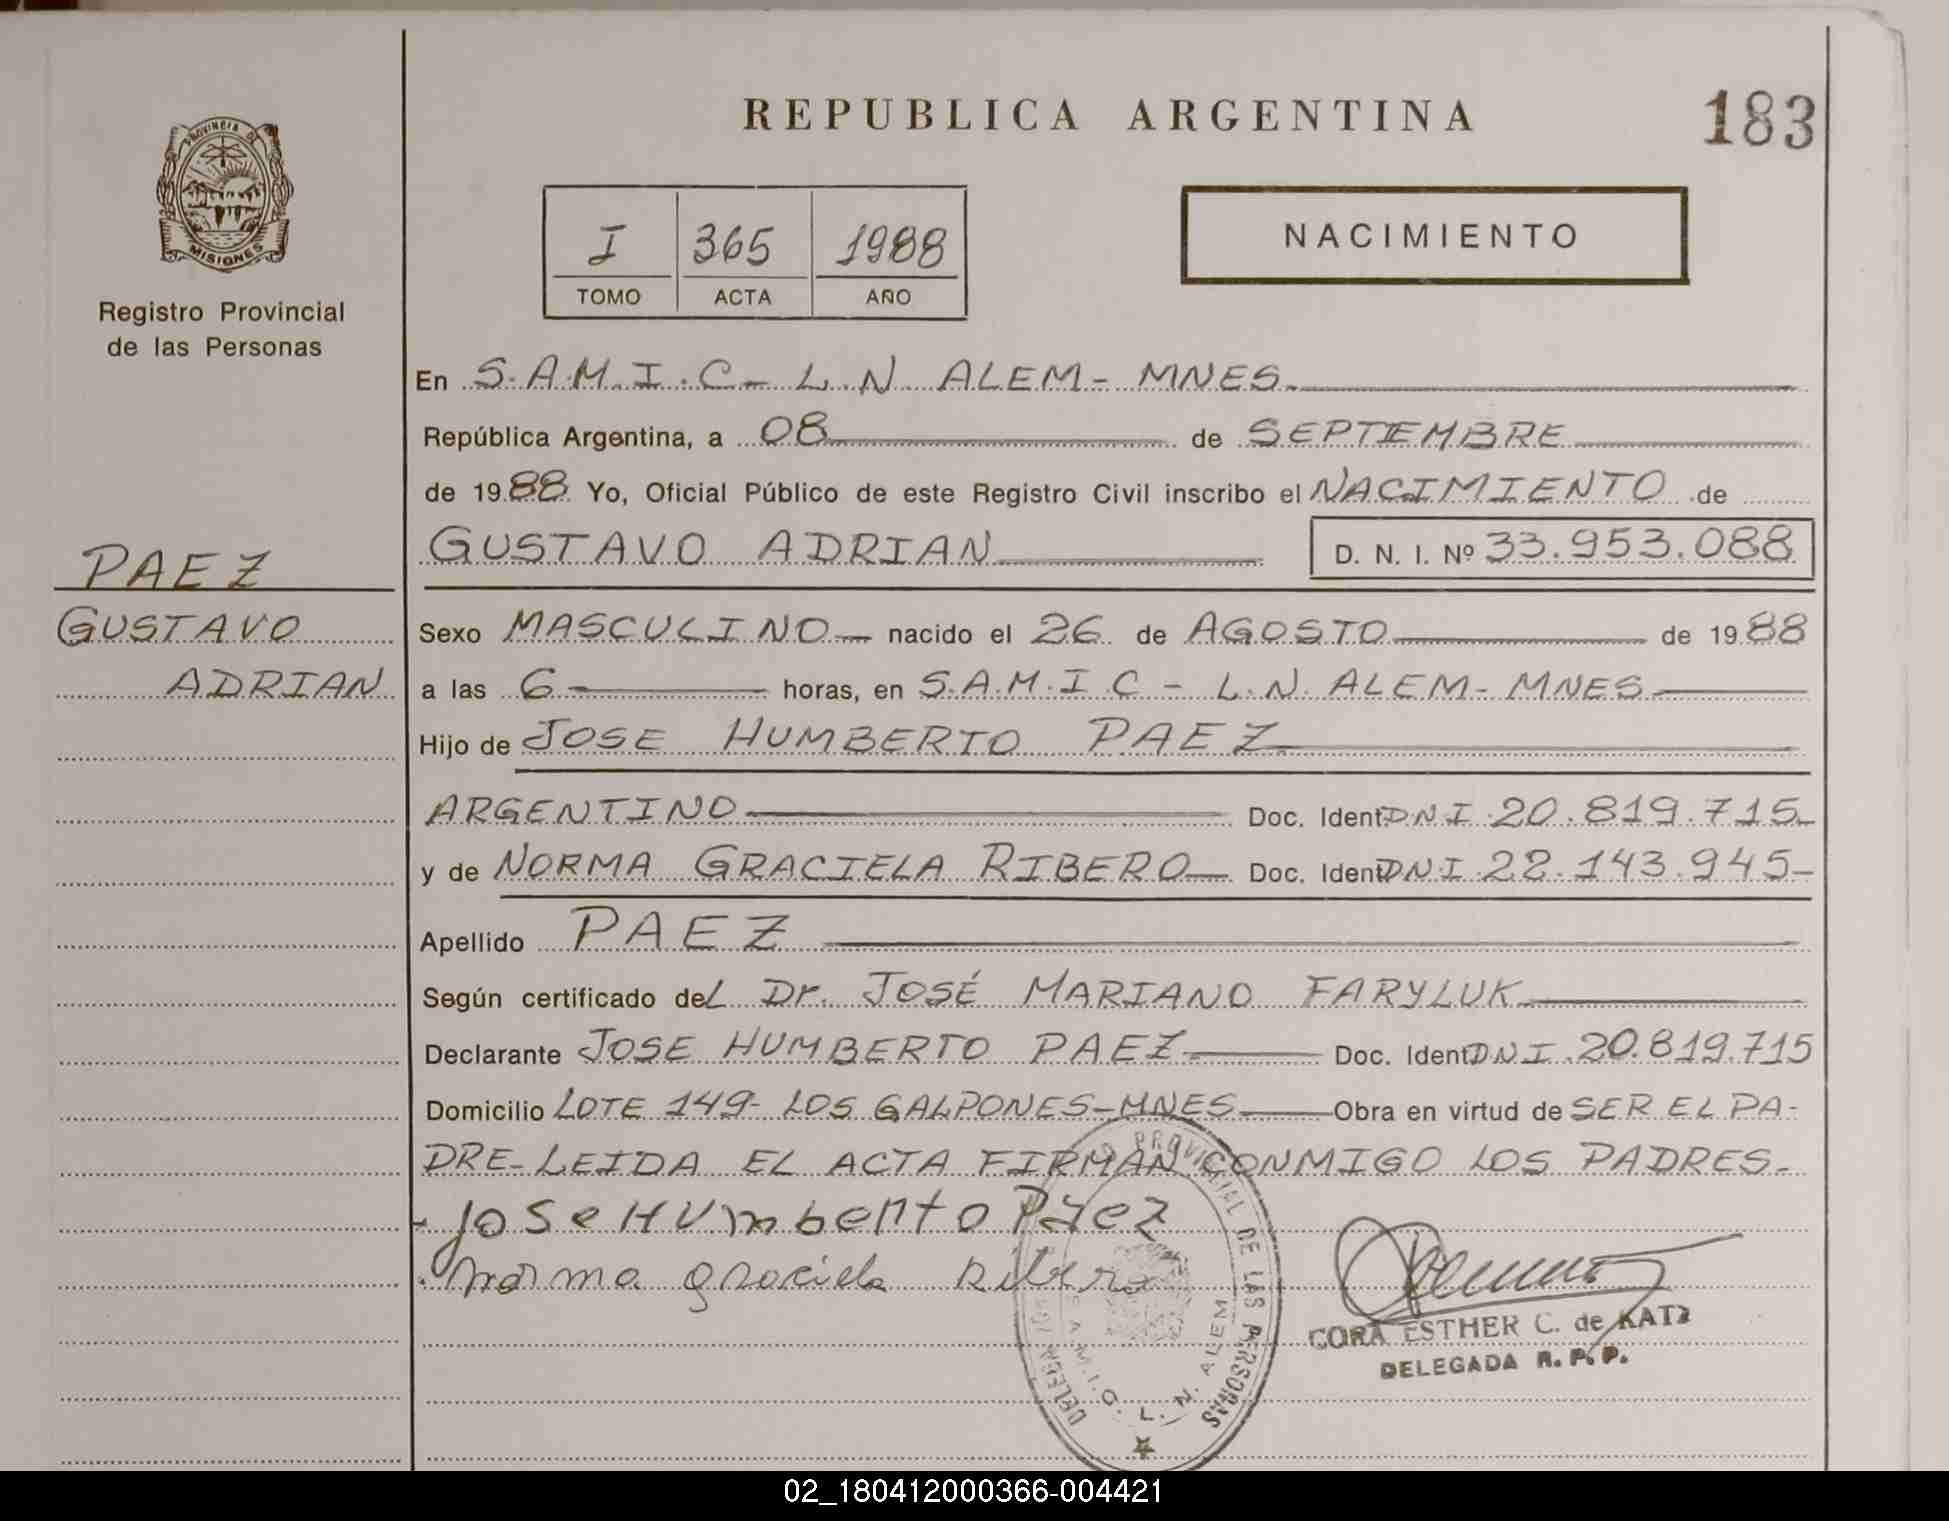 REPUBLICA ARGENTINA
183
PROVINCIA DE
MISIONES
Registro Provincial
de las Personas
I 365 1988
TOMO ACTA AÑO
NACIMIENTO
En S.A.M.I.C - L.N ALEM - MNES.
República Argentina, a 08 de SEPTIEMBRE
de 1988 Yo, Oficial Público de este Registro Civil inscribo el NACIMIENTO de
GUSTAVO ADRIAN D. N. I. Nº 33.953.088
PAEZ
GUSTAVO
ADRIAN
Sexo MASCULINO nacido el 26 de AGOSTO de 1988
a las 6 horas, en S.A.M.I C - L.N. ALEM - MNES
Hijo de JOSE HUMBERTO PAEZ
ARGENTINO Doc. Ident. DNI 20.819.715
y de NORMA GRACIELA RIBERO Doc. Ident. DNI 22.143.945
Apellido PAEZ
Según certificado del Dr. JOSÉ MARIANO FARYLUK
Declarante JOSE HUMBERTO PAEZ Doc. Ident. DNI 20.819.715
Domicilio LOTE 149 - LOS GALPONES - MNES Obra en virtud de SER EL PA-
DRE - LEIDA EL ACTA FIRMAN CONMIGO LOS PADRES.
jose HUmberto Paez
Norma graciela Ribero
PROVINCIAL DE LAS PERSONAS
L. N. ALEM
CORA ESTHER C. de KATZ
DELEGADA R. P. P.
02_180412000366-004421